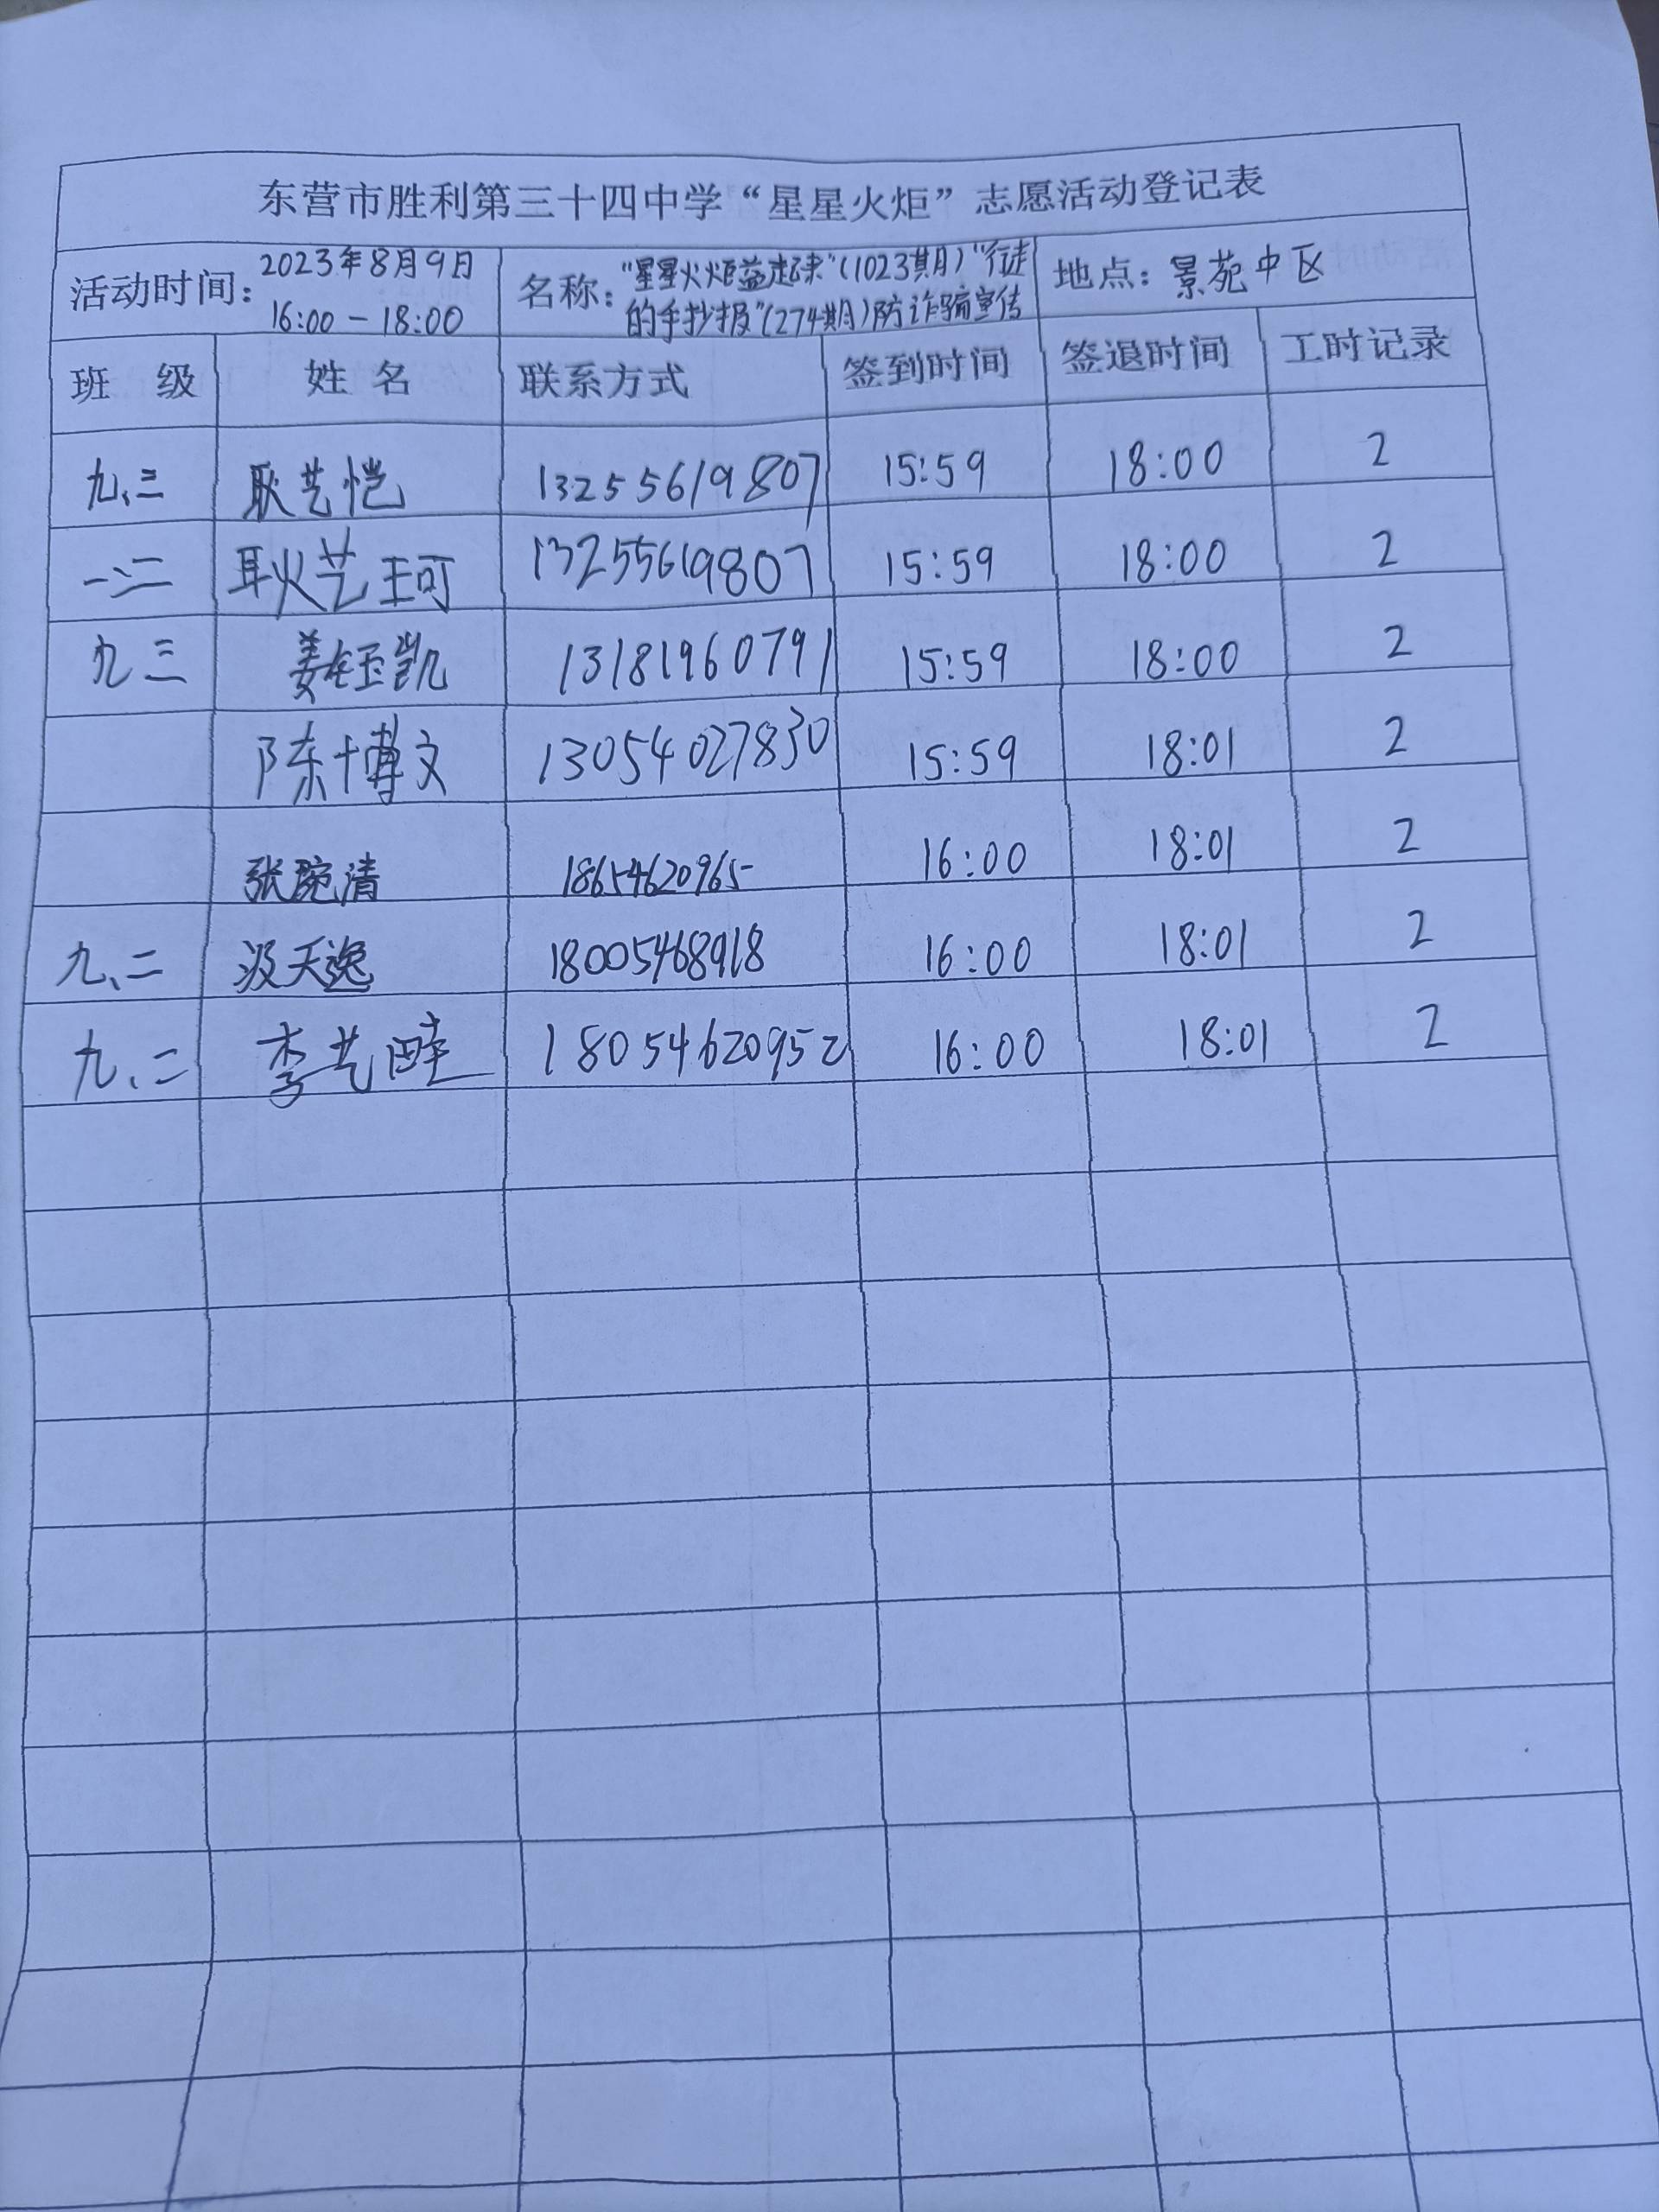 东营市胜利第三十四中学“星星火炬”志愿活动登记表
活动时间：2023年8月9日 16:00-18:00 名称：“星星火炬益起来”(1023期)“行走的手抄报”(274期)防诈骗宣传 地点：景苑中区
班 级 姓 名 联系方式 签到时间 签退时间 工时记录
九、三 耿艺恺 13255619807 15:59 18:00 2
一、二 耿艺珂 13255619807 15:59 18:00 2
九 三 姜钰凯 13181960791 15:59 18:00 2
陈博文 13054027830 15:59 18:01 2
张琬清 18654620965 16:00 18:01 2
九、二 汲天逸 18005468918 16:00 18:01 2
九、二 李艺畦 18054620952 16:00 18:01 2